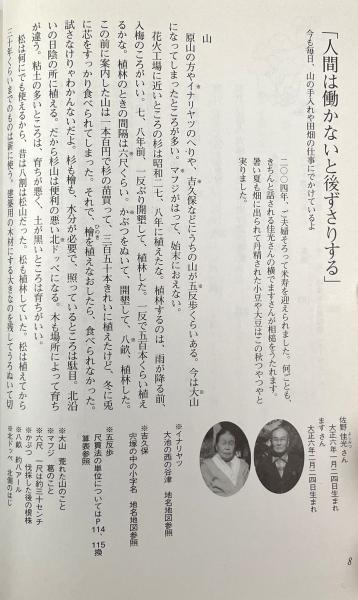 「人間は働かないと後ずさりする」
今も毎日、山の手入れや田畑の仕事にでかけているよ
佐野 佳光さん
大正六年一月二四日生まれ
ますさん
大正六年二月二四日生まれ
二〇〇四年、ご夫婦そろって米寿を迎えられました。何ごとも、
きちんと話される佳光さんの横でますさんが相槌をうたれます。
暑い夏も畑に出られて丹精された小豆や大豆はこの秋つやつやと
実りました。
山
原山の方やイナリヤツのへりや、吉久保などにうちの山が五反歩くらいある。今は大山
になってしまったところが多い。マフジがはって、始末におえない。
花火工場に近いところの杉は昭和二七、八年に植えたな。植林するのは、雨が降る前、
入梅のころがいい。七、八年前、一反ぶり開墾して、植林した。一反で五百本くらい植え
るかな。植林のときの間隔は六尺くらい。かぶつをぬいて、開墾して、八畝、植林した。
この前に案内した山は一本百円で杉の苗買って二百五十本きれいに植えたけど、冬に兎
に芯をすっかり食べられてしまった。それで、檜を植えなおしたら、食べられなかった。
試さなけりゃわかんないだよ。杉も檜も、水分が必要で、照っているところは駄目。北沿
いの日陰の所に植える。だから杉山は便利の悪い北ドッペになる。木も場所によって育ち
が違う。粘土の多いところは、育ちが悪く、土が黒いところは育ちがいい。
松は何にでも使えるから、昔は八割は松山だった。松も植林していた。松は植えてから
三十年くらいまでのものは薪に使う。建築用の木材にする大きなのを残してうろぬいて切
※イナリヤツ
大池の西の谷津 地名地図参照
※吉久保
宍塚の中の小字名 地名地図参照
※五反歩
尺貫法の単位についてはP114、115換
算表参照
※大山 荒れた山のこと
※マフジ 葛のこと
※六尺 一尺は約三十センチ
※かぶつ 伐採した後の根株
※八畝 約八アール
※北ドッペ 北側のはじ
8